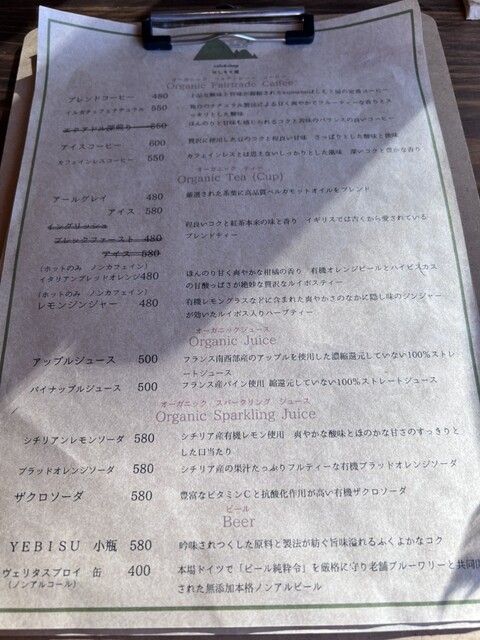 オーガニック フェアトレード コーヒー
Organic Fairtrade Caffee
ブレンドコーヒー 480
イルガチェフェナチュラル 550 独自のナチュラル製法による甘く爽やかでフルーティーな香りとス
ッキリとした酸味
エクアドル深煎り 550 ほんのりと甘味も感じられるコクと苦味のバランスの良いコーヒー
アイスコーヒー 600 贅沢に使用した豆のコクと程良い甘味 さっぱりとした酸味と後味
カフェインレスコーヒー 550 カフェインレスとは思えないしっかりとした風味 深いコクと豊かな香り
オーガニック ティー
Organic Tea (Cup)
アールグレイ 480 厳選された茶葉に高品質ベルガモットオイルをブレンド
アイス 580
イングリッシュ 程良いコクと紅茶本来の味と香り イギリスでは古くから愛されている
ブレックファースト 480 ブレンドティー
アイス 580
(ホットのみ ノンカフェイン) ほんのり甘く爽やかな柑橘の香り 有機オレンジピールとハイビスカス
イタリアンブレッドオレンジ480 の甘酸っぱさが絶妙な贅沢なルイボスティー
(ホットのみ ノンカフェイン) 有機レモングラスなどに含まれた爽やかさのなかに隠し味のジンジャー
レモンジンジャー 480 が効いたルイボス入りハーブティー
オーガニックジュース
Organic Juice
アップルジュース 500 フランス南西部産のアップルを使用した濃縮還元していない100%ストレ
ートジュース
パイナップルジュース 500 フランス産パイン使用 縮還元していない100%ストレートジュース
オーガニック スパークリング ジュース
Organic Sparkling Juice
シチリアンレモンソーダ 580 シチリア産有機レモン使用 爽やかな酸味とほのかな甘さのすっきりと
した口当たり
ブラッドオレンジソーダ 580 シチリア産の果汁たっぷりフルティーな有機ブラッドオレンジソーダ
ザクロソーダ 580 豊富なビタミンCと抗酸化作用が高い有機ザクロソーダ
ビール
Beer
YEBISU 小瓶 580 吟味されつくした原料と製法が紡ぐ旨味溢れるふくよかなコク
ヴェリタスブロイ 缶 400 本場ドイツで「ビール純粋令」を厳格に守り老舗ブルーワリーと共同
(ノンアルコール) された無添加本格ノンアルビール